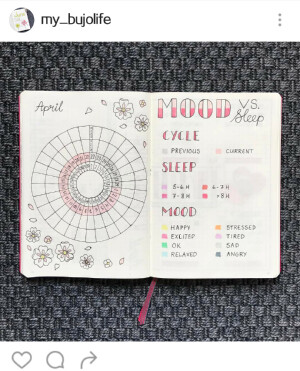 my_bujolife
April
MOOD VS.
Sleep
CYCLE
PREVIOUS CURRENT
SLEEP
5-6 H 6-7 H
7-8 H >8 H
MOOD
HAPPY STRESSED
EXCITED TIRED
OK SAD
RELAXED ANGRY